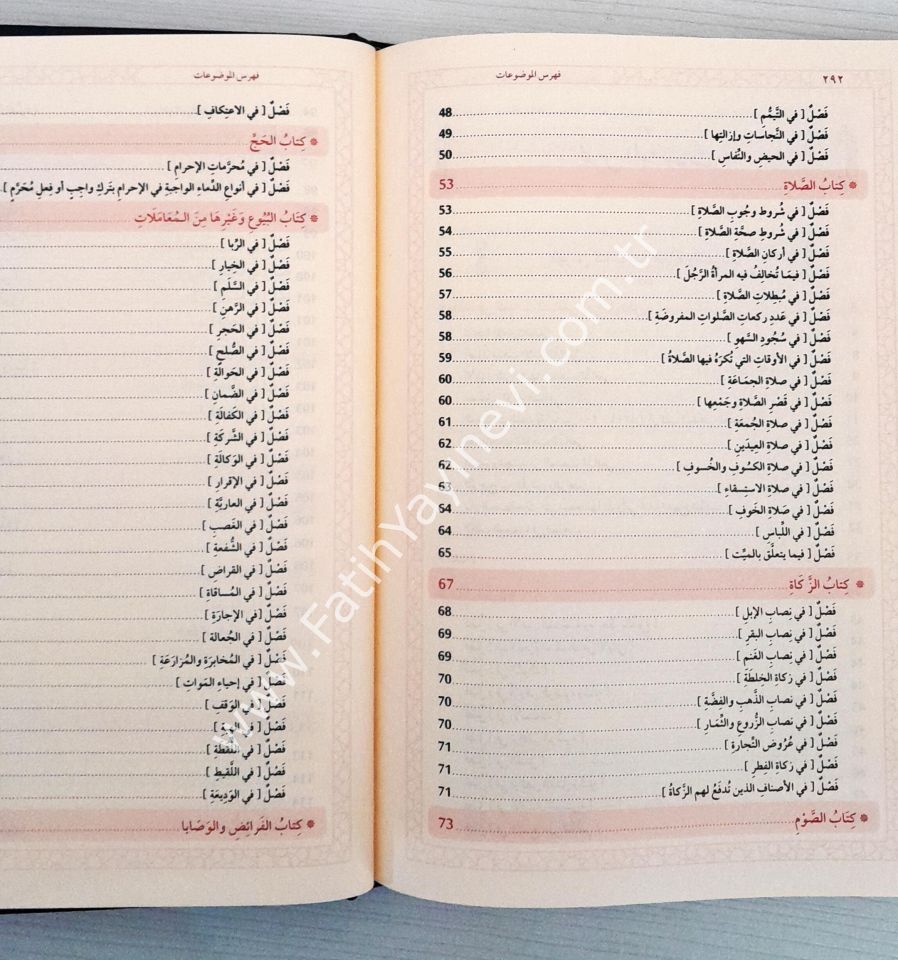 ٢٩٢ فهرس الموضوعات
فَصْلٌ [ في التَّيَمُّمِ ] 48
فَصْلٌ [ في النَّجاساتِ وإزالتِها ] 49
فَصْلٌ [ في الحيضِ والنِّفاسِ ] 50
* كِتَابُ الصَّلاةِ 53
فَصْلٌ [ في شُروطِ وجُوبِ الصَّلاةِ ] 53
فَصْلٌ [ في شُروطِ صحَّةِ الصَّلاةِ ] 54
فَصْلٌ [ في أركانِ الصَّلاةِ ] 55
فَصْلٌ [ فيمَا تُخالِفُ فيه المرأةُ الرَّجُلَ ] 56
فَصْلٌ [ في مُبطِلاتِ الصَّلاةِ ] 57
فَصْلٌ [ في عَددِ ركعاتِ الصَّلواتِ المفروضَةِ ] 58
فَصْلٌ [ في سُجُودِ السَّهوِ ] 58
فَصْلٌ [ في الأوقاتِ التي تُكرَهُ فيها الصَّلاةُ ] 59
فَصْلٌ [ في صلاةِ الجمَاعَةِ ] 60
فَصْلٌ [ في قَصْرِ الصَّلاةِ وجَمْعِها ] 60
فَصْلٌ [ في صلاةِ الجُمعَةِ ] 61
فَصْلٌ [ في صلاةِ العِيدَينِ ] 62
فَصْلٌ [ في صلاةِ الكسُوفِ والخُسوفِ ] 62
فَصْلٌ [ في صلاةِ الاستِسقاءِ ] 63
فَصْلٌ [ في صَلاةِ الخَوفِ ] 64
فَصْلٌ [ في اللِّباسِ ] 64
فَصْلٌ [ فيما يتعلَّقُ بالميِّت ] 65
* كِتابُ الزَّكَاةِ 67
فَصْلٌ [ في نِصابِ الإبلِ ] 68
فَصْلٌ [ في نِصابِ البقرِ ] 69
فَصْلٌ [ في نِصابِ الغَنمِ ] 69
فَصْلٌ [ في زكاةِ الخِلطَةِ ] 70
فَصْلٌ [ في نصابِ الذَّهبِ والفِضَّةِ ] 70
فَصْلٌ [ في نصابِ الزُّروعِ والثِّمارِ ] 70
فَصْلٌ [ في عُرُوضِ التِّجارةِ ] 71
فَصْلٌ [ في زكاةِ الفِطرِ ] 71
فَصْلٌ [ في الأصنافِ الذين تُدفَعُ لهم الزَّكاةُ ] 71
* كِتَابُ الصَّوْمِ 73
فهرس الموضوعات
فَصْلٌ [ في الاعتِكافِ ]
* كِتابُ الحَجِّ
فَصْلٌ [ في مُحرَّماتِ الإحرامِ ]
فَصْلٌ [ في أنواعِ الدِّماءِ الواجبَةِ في الإحرامِ بتَركِ واجبٍ أو فِعلِ مُحَرَّمٍ ]
* كِتابُ البُيُوعِ وَغَيْرِهَا مِنَ المُعَامَلَاتِ
فَصْلٌ [ في الرِّبا ]
فَصْلٌ [ في الخِيارِ ]
فَصْلٌ [ في السَّلَمِ ]
فَصْلٌ [ في الرَّهنِ ]
فَصْلٌ [ في الحَجرِ ]
فَصْلٌ [ في الصُّلحِ ]
فَصْلٌ [ في الحَوالَةِ ]
فَصْلٌ [ في الضَّمانِ ]
فَصْلٌ [ في الكَفالَةِ ]
فَصْلٌ [ في الشَّركَةِ ]
فَصْلٌ [ في الوَكالَةِ ]
فَصْلٌ [ في الإقرارِ ]
فَصْلٌ [ في العاريَّةِ ]
فَصْلٌ [ في الغَصبِ ]
فَصْلٌ [ في الشُّفعةِ ]
فَصْلٌ [ في القراضِ ]
فَصْلٌ [ في المُساقاةِ ]
فَصْلٌ [ في الإجارَةِ ]
فَصْلٌ [ في الجُعالة ]
فَصْلٌ [ في المُخابرَةِ والمُزارَعَةِ ]
فَصْلٌ [ في إحياءِ المَواتِ ]
فَصْلٌ [ في الوَقفِ ]
فَصْلٌ [ في الهِبةِ ]
فَصْلٌ [ في اللُّقَطَةِ ]
فَصْلٌ [ في اللَّقيطِ ]
فَصْلٌ [ في الوَدِيعَةِ ]
* كِتَابُ الفَرائِضِ والوَصَايا
www.FatihYayinevi.com.tr